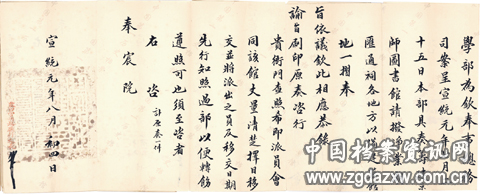 學部為欽奉事總務
司案呈宣統元年七月二
十五日本部具奏籌建京
師圖書館請撥
匯通祠各地方以
地一摺奉
旨依議欽此相應恭錄
諭旨刷印原奏咨行
貴衙門查照希即派員會
同該館丈量清楚擇日移
交並將派出之員及移交日期
先行知照過部以便轉飭
遵照可也須至咨者
右咨 計原奏一件
奉宸院
宣統元年八月初四日
中国档案资讯网
www.zgdazxw.com.cn